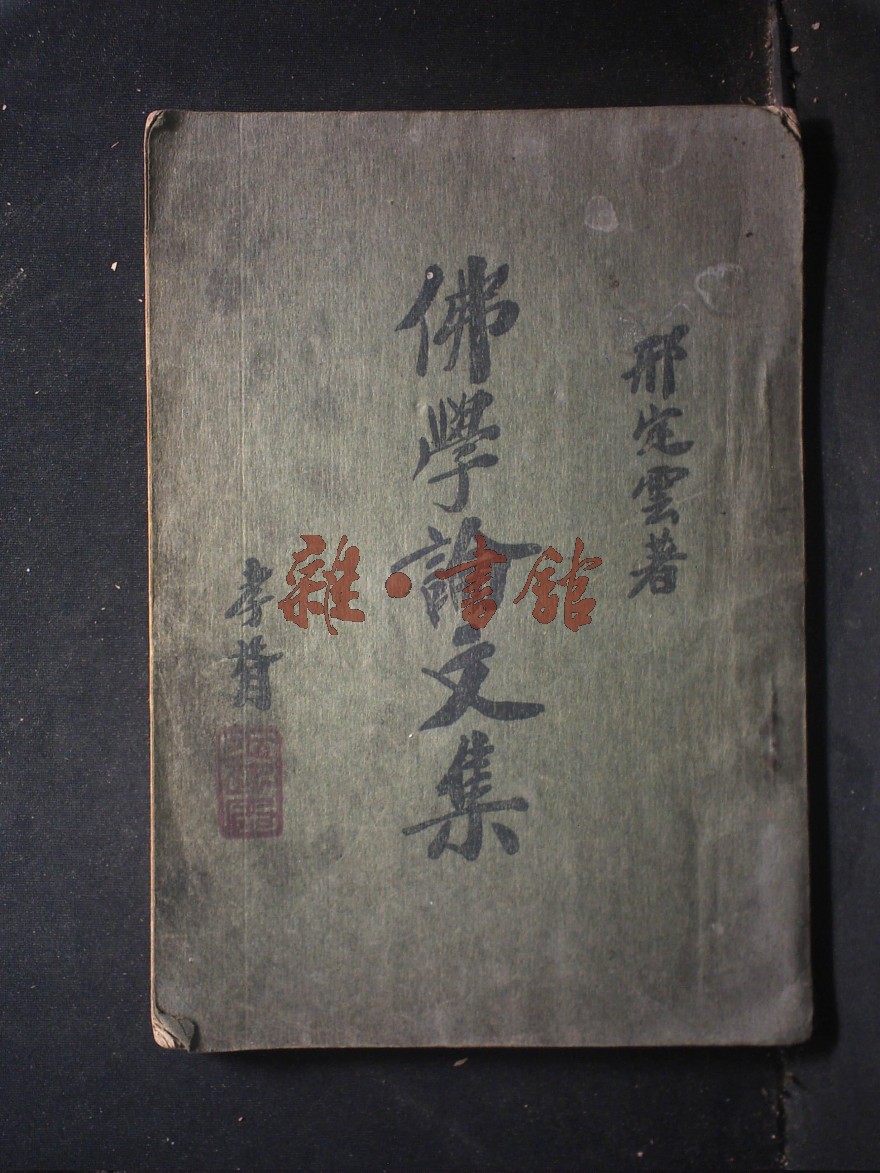 邢定雲著
佛學論文集
孝胥
雜·書館